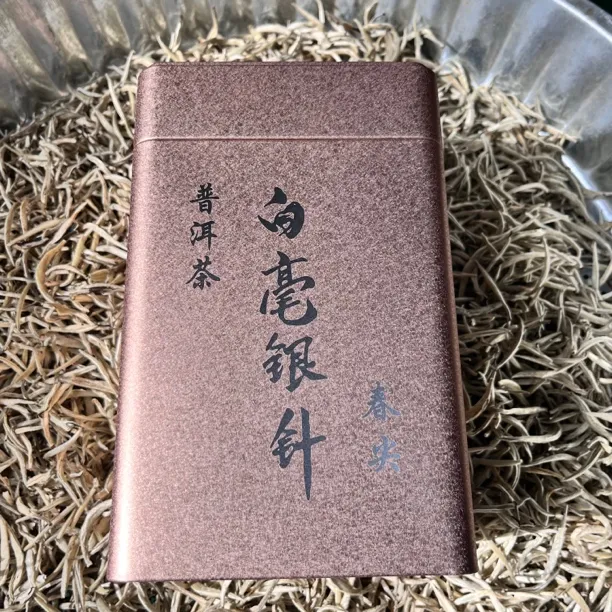 普洱茶
白毫银针
春尖